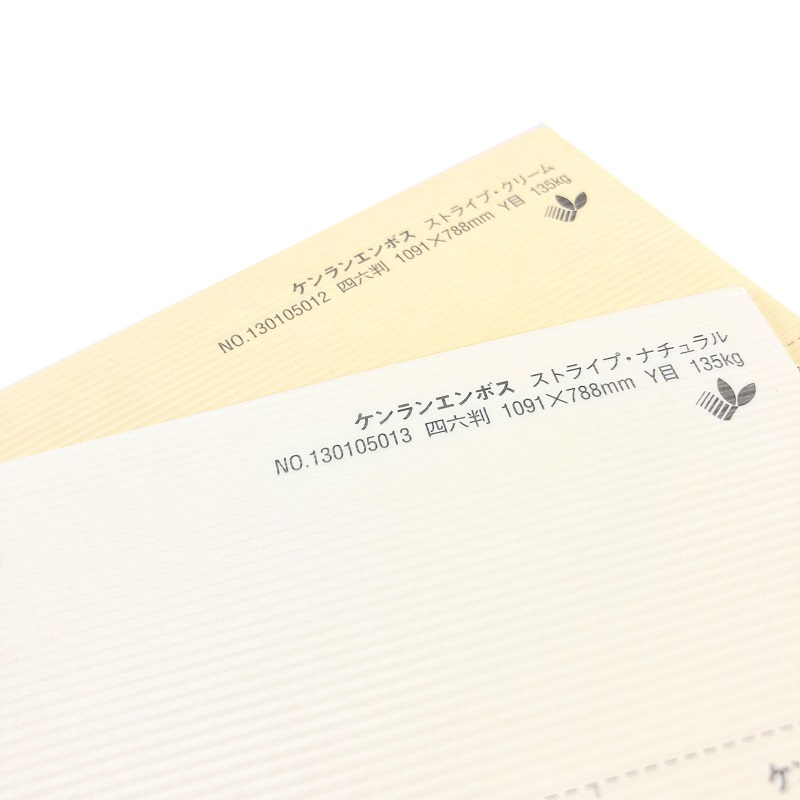 ケンランエンボス ストライプ・クリーム
NO.130105012 四六判 1091×788mm Y目 135kg
ケンランエンボス ストライプ・ナチュラル
NO.130105013 四六判 1091×788mm Y目 135kg
ケン